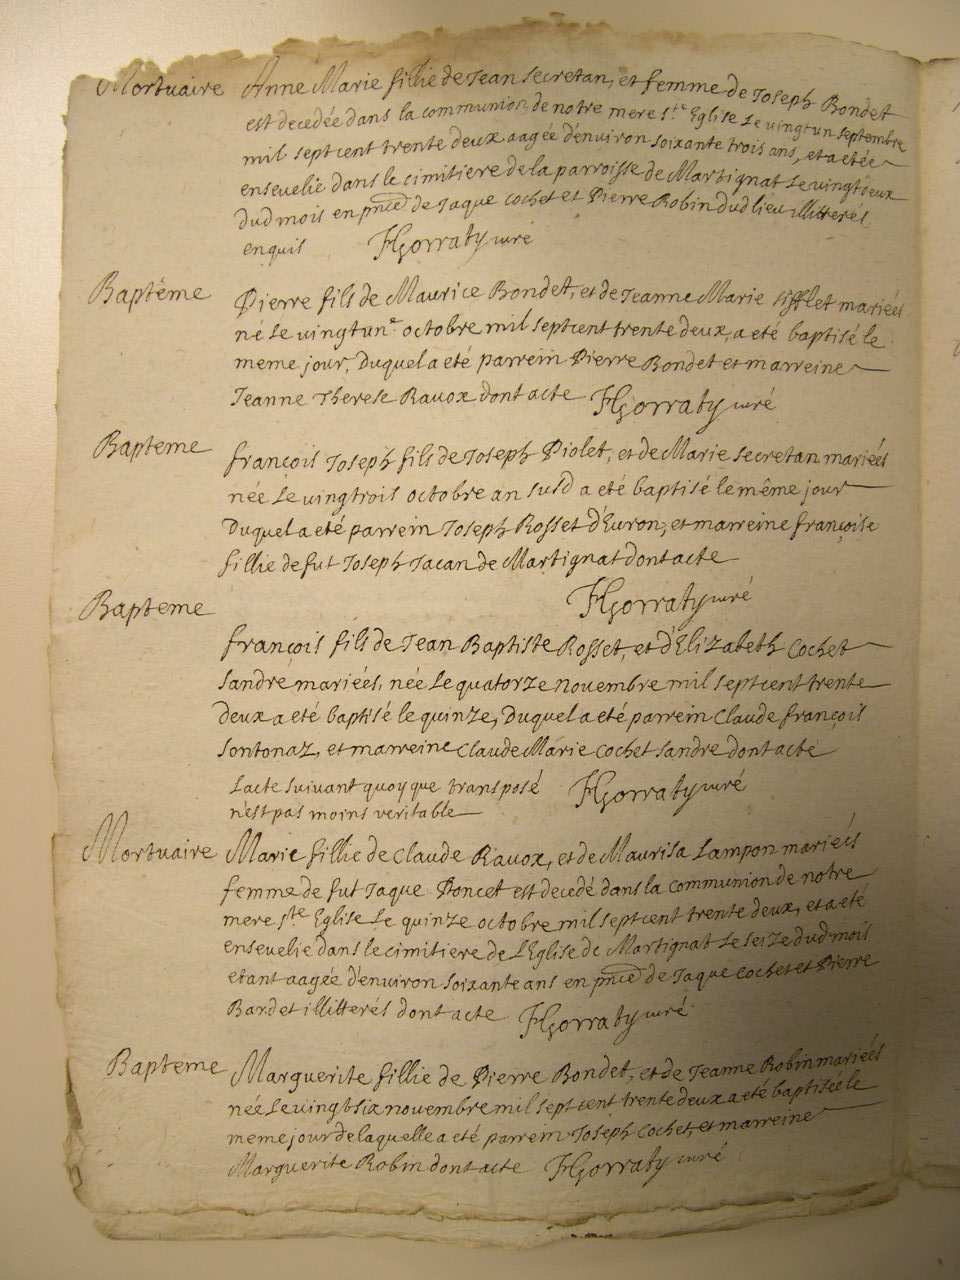 Mortuaire Anne Marie fillie de Jean Secretan, et femme de Joseph Bondet
est decedée dans la communion de notre mere s.te Eglise Le vingtun septembre
mil sept cent trente deux aagée d'environ soixante trois ans, et a etée
ensevelie dans le cimitiere de la parroisse de Martignat Le vingtdeux
dud mois en pnce de Jaque Cochet et Pierre Robin dud lieu illitterés
enquis FGorraty curé
Baptéme Pierre fils de Maurice Bondet, et de Jeanne Marie Sifflet mariées
né Le vingtun.e octobre mil sept cent trente deux, a eté baptisé le
meme jour, Duquel a eté parrein Pierre Bondet et marreine
Jeanne Therese Ravox dont acte FGorraty curé
Bapteme françois Joseph fils de Joseph Piolet, et de Marie Secretan mariées
née Le vingtrois octobre an susd a eté baptisé le même jour
Duquel a eté parrein Joseph Rosset d'Evron, et marreine françoise
fillie de fut Joseph Jacan de Martignat dont acte
FGorraty curé
Bapteme
françois fils de Jean Baptiste Rosset, et d'Elizabeth Cochet
Sandre mariées, née Le quatorze novembre mil sept cent trente
deux a eté baptisé le quinze, Duquel a eté parrein Claude françois
Sontonaz, et marreine Claude Marie Cochet Sandre dont acte
Lacte suivant quoy que transposé FGorraty curé
n'est pas moins veritable
Mortuaire Marie fillie de Claude Ravox, et de Maurisa Lampon mariées
femme de fut Jaque Poncet est decedé dans la communion de notre
mere s.te Eglise Le quinze octobre mil sept cent trente deux, et a eté
ensevelie dans le cimitiere de L'Eglise de Martignat Le seize dud mois
etant aagée d'environ soixante ans en pnce de Jaque Cochet et Pierre
Bardet illitterés dont acte FGorraty curé
Bapteme Marguerite fillie de Pierre Bondet, et de Jeanne Robin mariées
née Le vingtsix novembre mil sept cent trente deux a eté baptisée le
meme jour de laquelle a eté parrein Joseph Cochet, et marreine
Marguerite Robin dont acte FGorraty curé